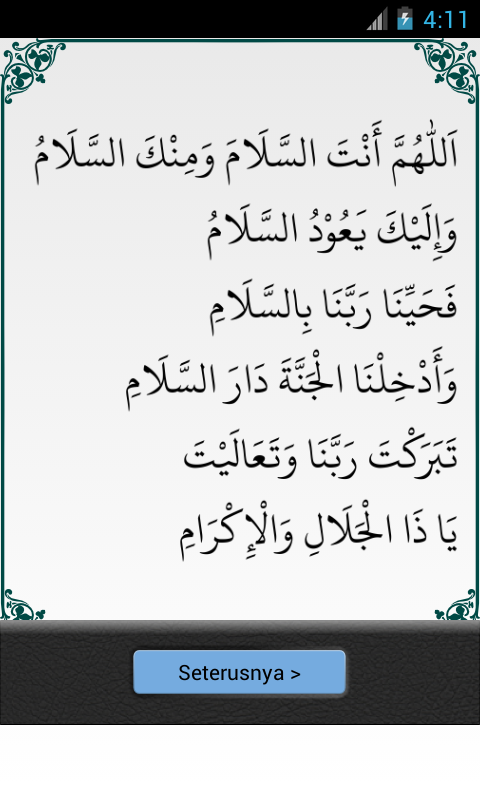 4:11
اَللّٰهُمَّ أَنْتَ السَّلَامَ وَمِنْكَ السَّلَامُ
وَإِلَيْكَ يَعُوْدُ السَّلَامُ
فَحَيِّنَا رَبَّنَا بِالسَّلَامِ
وَأَدْخِلْنَا الْجَنَّةَ دَارَ السَّلَامِ
تَبَرَكْتَ رَبَّنَا وَتَعَالَيْتَ
يَا ذَا الْجَلَالِ وَالْإِكْرَامِ
Seterusnya >